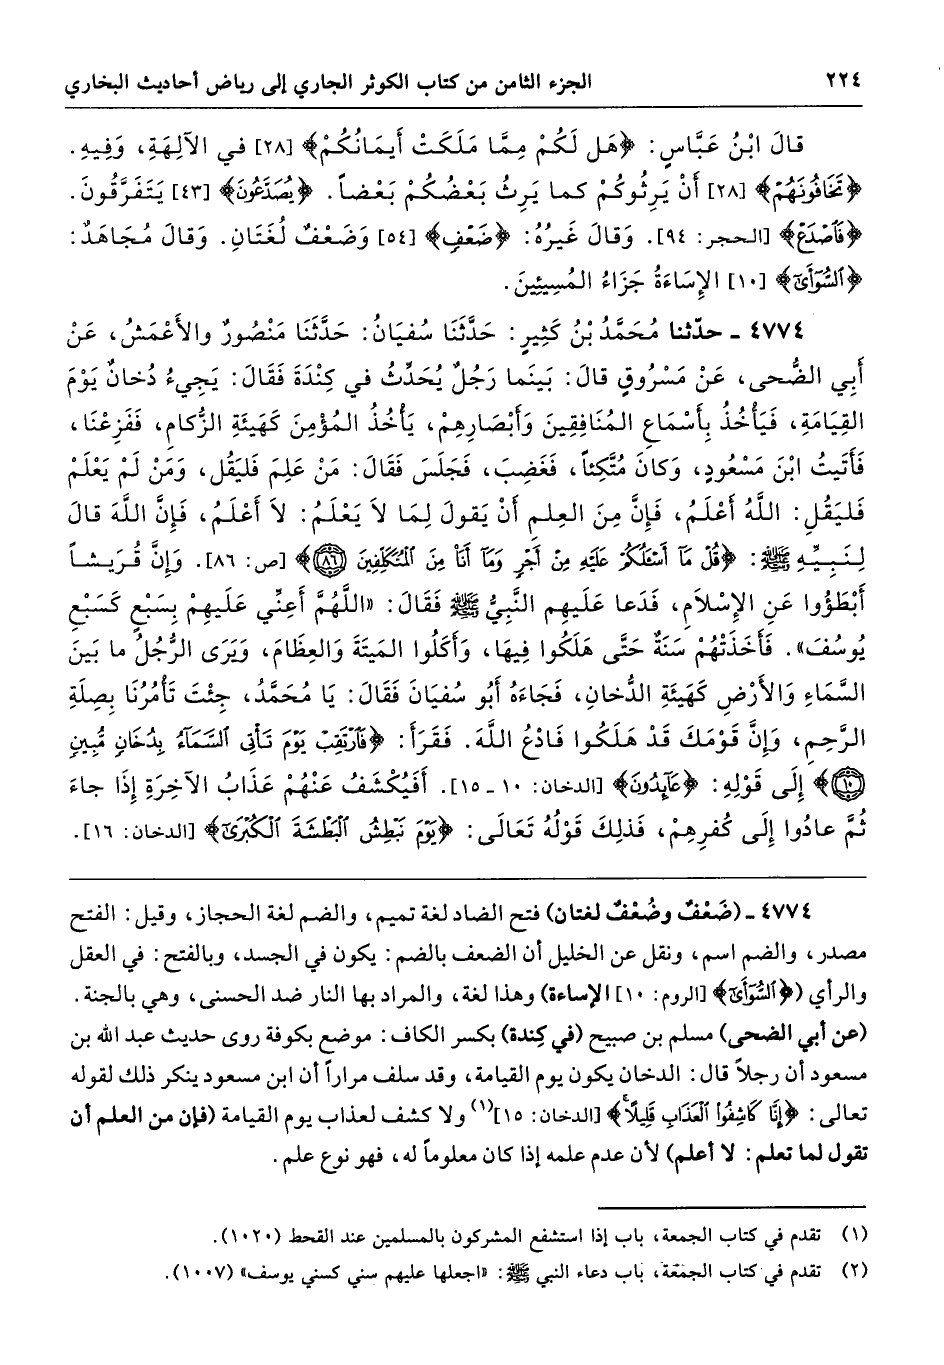 ٢٢٤ الجزء الثامن من كتاب الكوثر الجاري إلى رياض أحاديث البخاري
قالَ ابْنُ عَبَّاسٍ: ﴿هَل لَكُمْ مِمَّا مَلَكَتْ أَيمَانُكُمْ﴾ [٢٨] في الآلِهَةِ، وَفِيهِ.
﴿تَخَافُونَهُمْ﴾ [٢٨] أَنْ يَرِثُوكُمْ كما يَرِثُ بَعْضُكُمْ بَعْضاً. ﴿يَصَّدَّعُونَ﴾ [٤٣] يَتَفَرَّقُونَ.
﴿فَاصْدَعْ﴾ [الحجر: ٩٤]. وَقالَ غَيرُهُ: ﴿ضَعْفٍ﴾ [٥٤] وَضَعْفٌ لُغَتَانِ. وَقالَ مُجَاهَدٌ:
﴿السُّوأَىٰ﴾ [١٠] الإِسَاءَةُ جَزَاءُ المُسِيئِينَ.
٤٧٧٤ ـ حدّثنا مُحَمَّدُ بْنُ كَثِيرٍ: حَدَّثَنَا سُفيَانُ: حَدَّثَنَا مَنْصُورٌ والأَعْمَشُ، عَنْ
أَبِي الضُّحى، عَنْ مَسْرُوقٍ قالَ: بَينَما رَجُلٌ يُحَدِّثُ في كِنْدَةَ فَقَالَ: يَجِيءُ دُخانٌ يَوْمَ
القِيَامَةِ، فَيَأْخُذُ بِأَسْمَاعِ المُنَافِقِينَ وَأَبْصَارِهِمْ، يَأْخُذُ المُؤْمِنَ كَهَيئَةِ الزُّكامِ، فَفَزِعْنَا،
فَأَتَيتُ ابْنَ مَسْعُودٍ، وَكانَ مُتَّكِئاً، فَغَضِبَ، فَجَلَسَ فَقَالَ: مَنْ عَلِمَ فَليَقُل، وَمَنْ لَمْ يَعْلَمْ
فَليَقُلِ: اللَّهُ أَعْلَمُ، فَإِنَّ مِنَ العِلمِ أَنْ يَقولَ لِمَا لاَ يَعْلَمُ: لاَ أَعْلَمُ، فَإِنَّ اللَّهَ قالَ
لِنَبِيِّهِ ﷺ: ﴿قُلْ مَآ أَسْـَٔلُكُمْ عَلَيْهِ مِنْ أَجْرٍ وَمَآ أَنَا۠ مِنَ ٱلْمُتَكَلِّفِينَ ٨٦﴾ [ص: ٨٦]. وَإِنَّ قُرَيشاً
أَبْطَؤُوا عَنِ الإِسْلاَمِ، فَدَعا عَلَيهِم النَّبِيُّ ﷺ فَقَالَ: «اللَّهُمَّ أَعِنِّي عَلَيهِمْ بِسَبْعٍ كَسَبْعِ
يُوسُفَ». فَأَخَذَتْهُمْ سَنَةٌ حَتَّى هَلَكُوا فِيهَا، وَأَكَلُوا المَيتَةَ وَالعِظَامَ، وَيَرَى الرَّجُلُ ما بَينَ
السَّمَاءِ وَالأَرْضِ كَهَيئَةِ الدُّخانِ، فَجَاءَهُ أَبُو سُفيَانَ فَقَالَ: يَا مُحَمَّدُ، جِئْتَ تَأْمُرُنَا بِصِلَةِ
الرَّحِمِ، وَإِنَّ قَوْمَكَ قَدْ هَلَكُوا فَادْعُ اللَّهَ. فَقَرَأَ: ﴿فَٱرْتَقِبْ يَوْمَ تَأْتِى ٱلسَّمَآءُ بِدُخَانٍ مُّبِينٍ
١٠﴾ إِلَى قَوْلِهِ: ﴿عَآئِدُونَ﴾ [الدخان: ١٠ ـ ١٥]. أَفَيُكْشَفُ عَنْهُمْ عَذَابُ الآخِرَةِ إِذَا جاءَ
ثُمَّ عادُوا إِلَى كُفرِهِمْ، فَذلِكَ قَوْلُهُ تَعَالَى: ﴿يَوْمَ نَبْطِشُ ٱلْبَطْشَةَ ٱلْكُبْرَىٰٓ﴾ [الدخان: ١٦].
٤٧٧٤ ـ (ضَعْفٌ وضُعْفٌ لغتان) فتح الضاد لغة تميم، والضم لغة الحجاز، وقيل: الفتح
مصدر، والضم اسم، ونقل عن الخليل أن الضعف بالضم: يكون في الجسد، وبالفتح: في العقل
والرأي (﴿ٱلسُّوٓأَىٰٓ﴾ [الروم: ١٠] الإساءة) وهذا لغة، والمراد بها النار ضد الحسنى، وهي بالجنة.
(عن أبي الضحى) مسلم بن صبيح (في كِندة) بكسر الكاف: موضع بكوفة روى حديث عبد الله بن
مسعود أن رجلاً قال: الدخان يكون يوم القيامة، وقد سلف مراراً أن ابن مسعود ينكر ذلك لقوله
تعالى: ﴿إِنَّا كَاشِفُوا۟ ٱلْعَذَابِ قَلِيلًا﴾ [الدخان: ١٥]⁽¹⁾ ولا كشف لعذاب يوم القيامة (فإن من العلم أن
تقول لما تعلم: لا أعلم) لأن عدم علمه إذا كان معلوماً له، فهو نوع علم.
(١) تقدم في كتاب الجمعة، باب إذا استشفع المشركون بالمسلمين عند القحط (١٠٢٠).
(٢) تقدم في كتاب الجمعة، باب دعاء النبي ﷺ: «اجعلها عليهم سني كسني يوسف» (١٠٠٧).